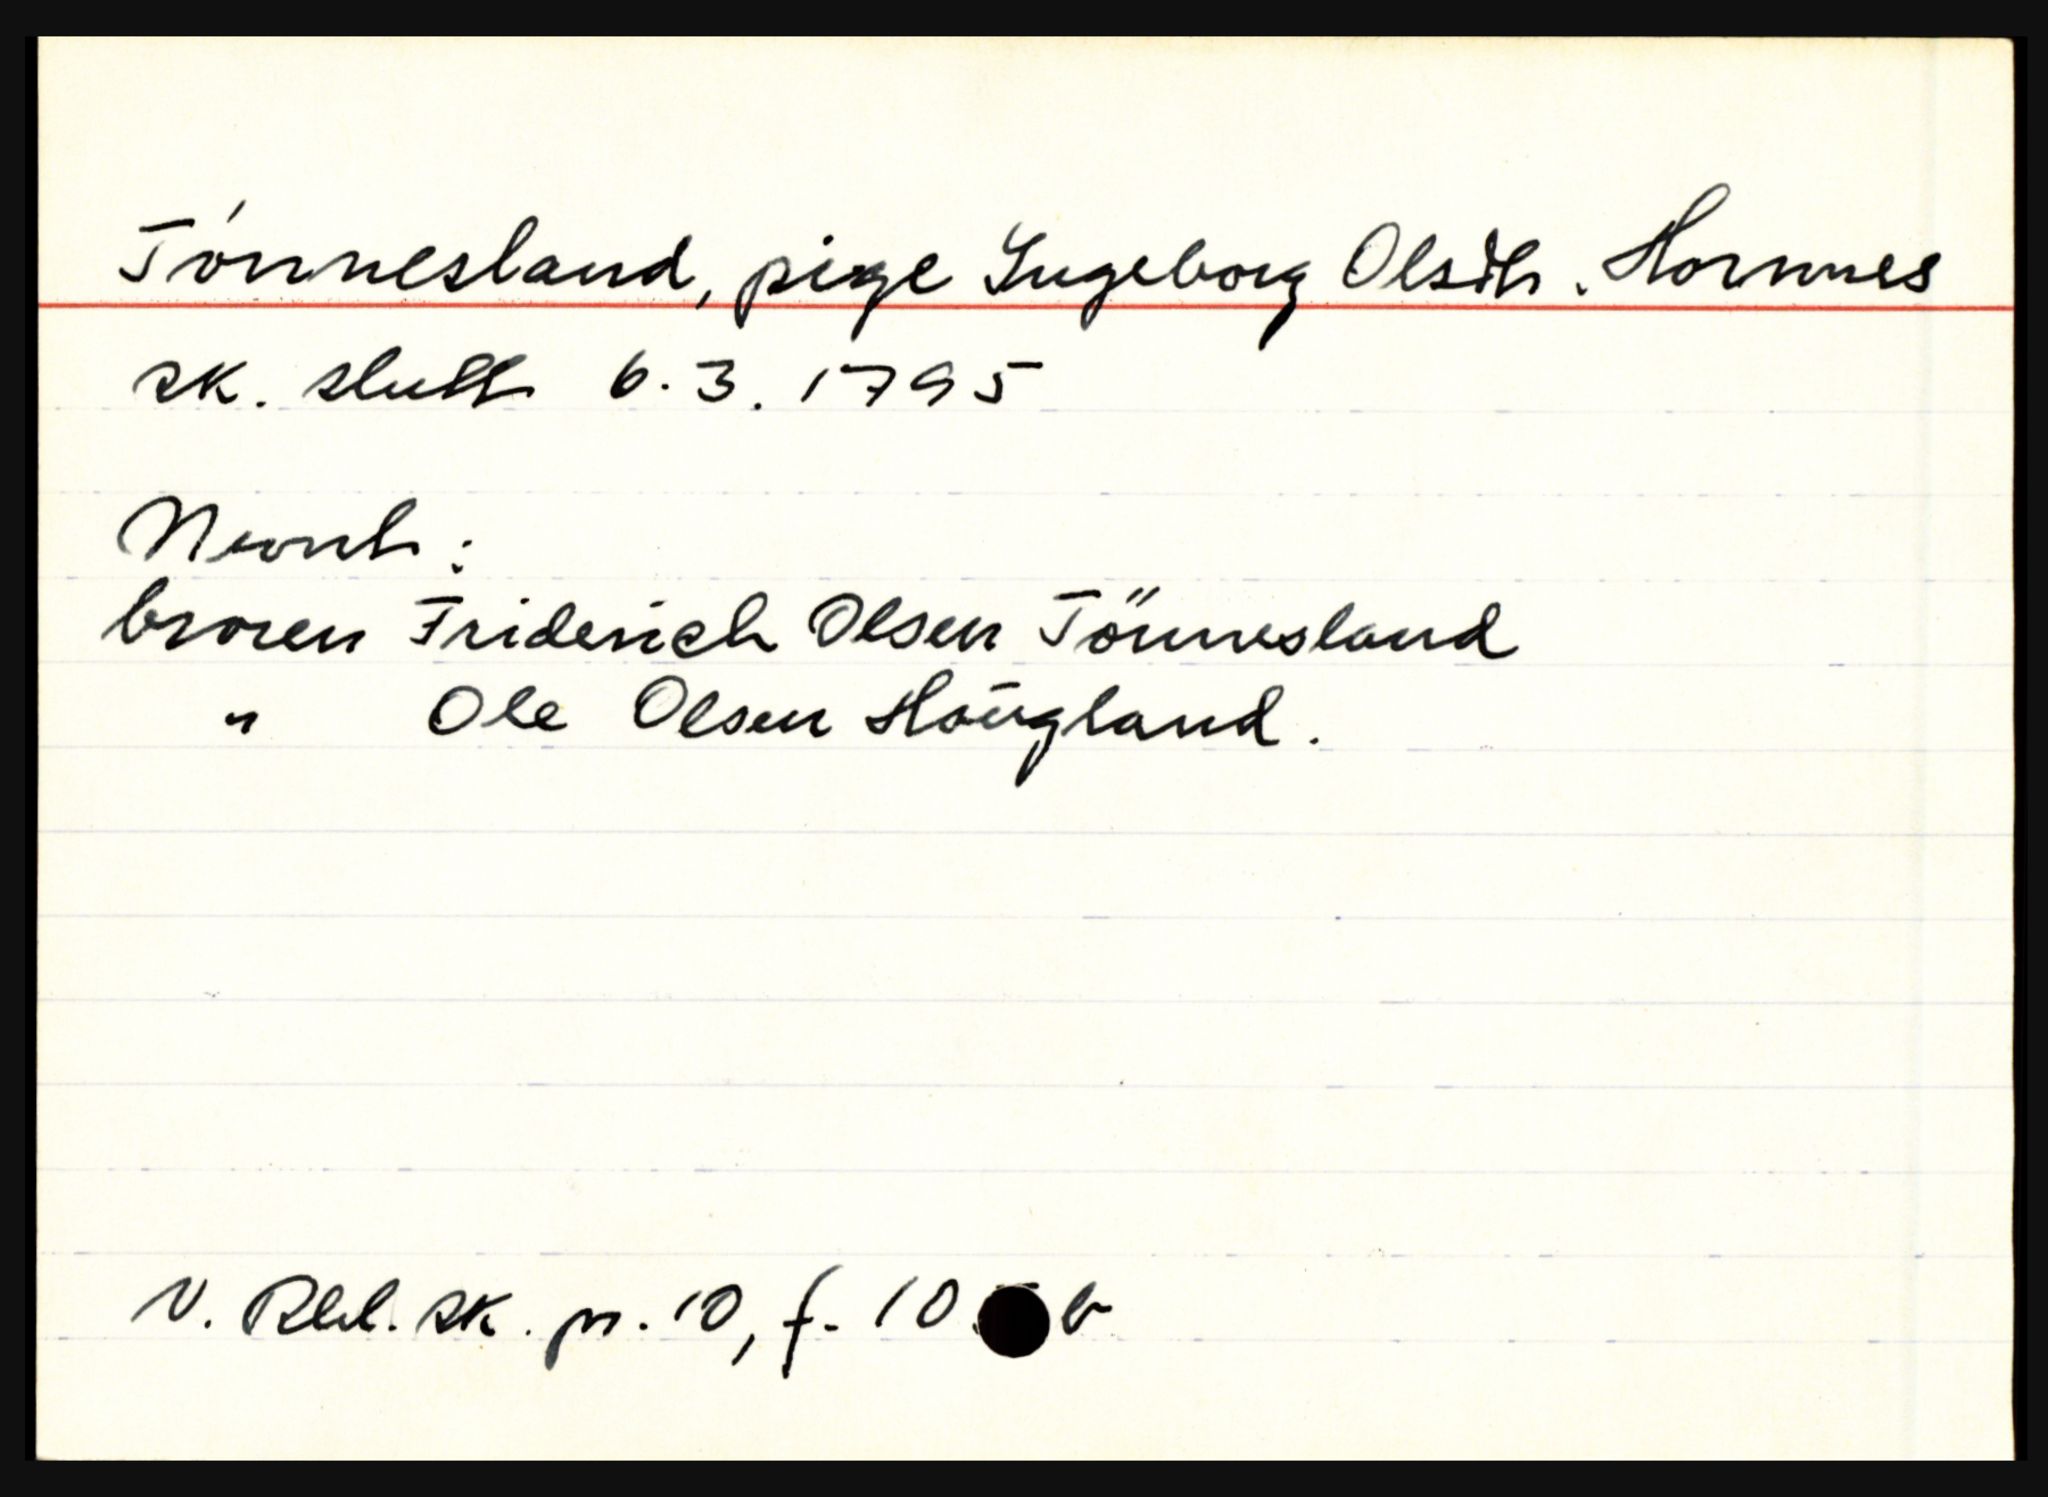 Tónnesland, pige Ingeborg Olsdtr. Hornnes
sk. slutt 6.3.1795

Nevnt:
broren Friderich Olsen Tönnesland
" Ole Olsen Høugland.

V. Rbd. sk. pr. 10, f. 10 b